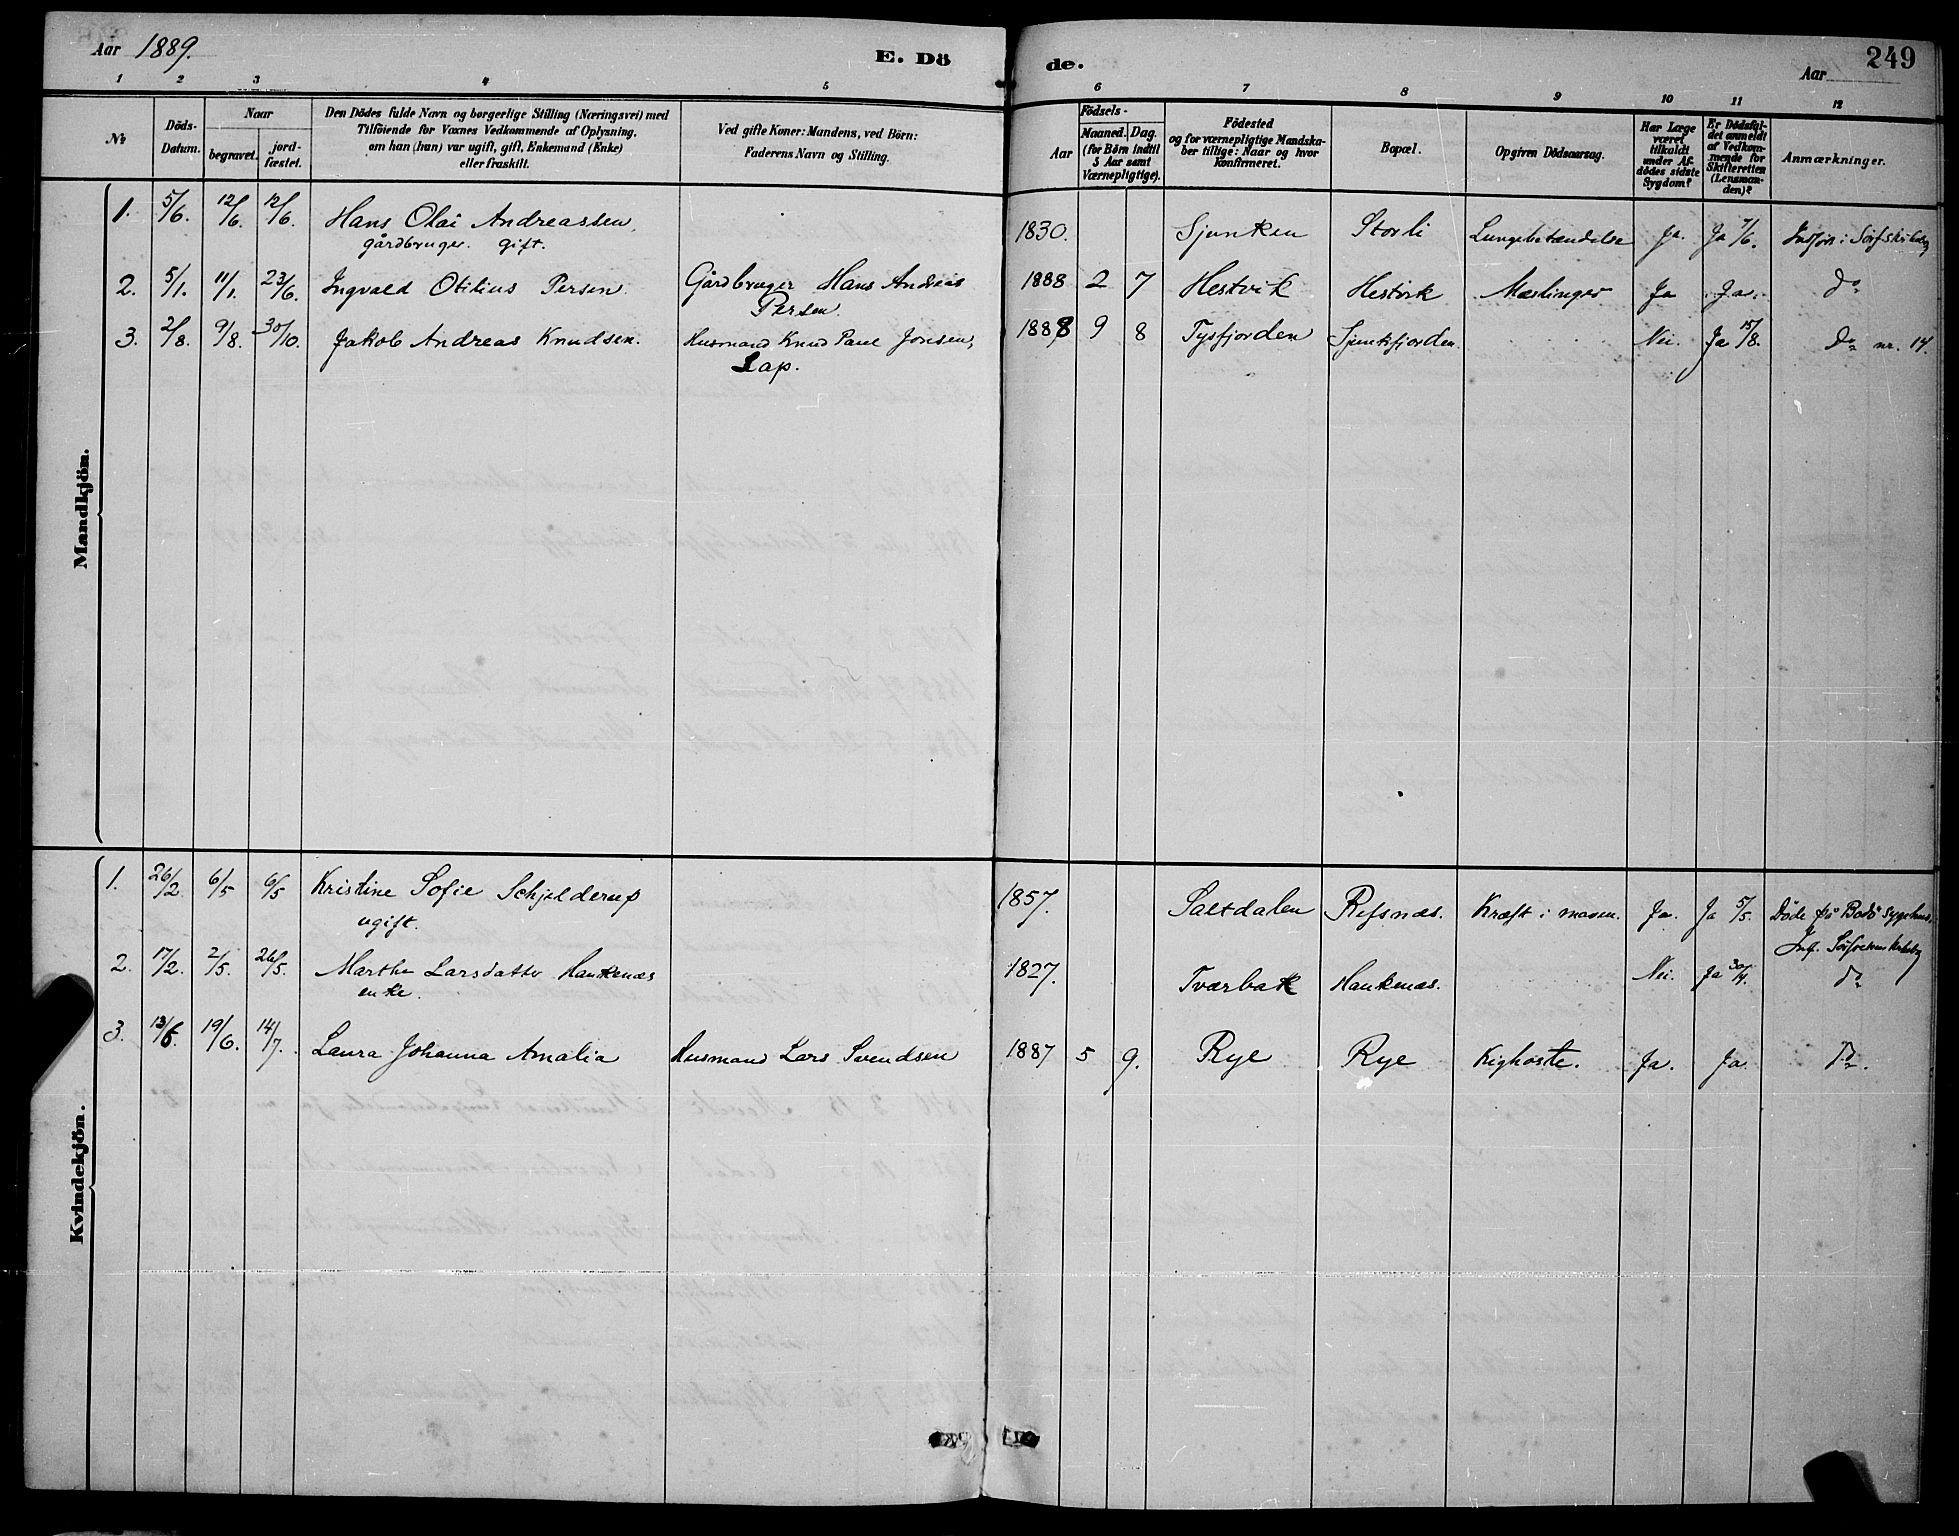 Aar 1889. E. Dö de. Aar 249
1 2 3 4 5 6 7 8 9 10 11 12
№ Döds-Datum. Naar begravet. jordfæstet. Den Dödes fulde Navn og borgerlige Stilling (Næringsvei) med Tilföiende for Voxnes Vedkommende af Oplysning, om han (hun) var ugift, gift, Enkemand (Enke) eller fraskilt. Ved gifte Koner: Mandens, ved Börn: Faderens Navn og Stilling. Aar Födsels- Maaned. Dag. (for Börn indtil 5 Aar samt Værnepligtige). Födested og for værnepligtige Mandskaber tillige: Naar og hvor konfirmeret. Bopæl. Opgiven Dödsaarsag. Har Læge været tilkaldt under Afdödes sidste Sygdom? Er Dödsfaldet anmeldt af Vedkommende for Skifteretten (Lensmanden)? Anmærkninger.
Mandkjön.
1. 5/6. 12/6. 12/6. Hans Olai Andreassen, 1830. Sjunken Storli Lungebetændelse Ja. Ja 7/6.
gårdbruger. gift.
2. 5/1. 11/1. 23/6. Ingvald Otilius Persen. Gårdbruger Hans Andreas 1888 2 7 Hestvik Hestvik Mæslinger Ja Ja. do
Persen.
3. 2/8. 9/8. 30/10. Jakob Andreas Knudsen. Husmand Knud Paul Jonsen, 1888 9 8 Tysfjorden Sjunkfjorden. Nei. Ja 15/8. do nr. 14.
Lap.
Kvindekjön.
1. 26/2. 6/5 6/5 Kristine Sofie Schjelderup 1857. Saltdalen Refsnæs. Kræft i maven. Ja. Ja 5/5. Döde på Bodö sygehus.
ugift.
2. 17/2. 2/5. 26/5. Marthe Larsdatter Haukenæs 1827. Tværbak Haukenæs. Nei. Ja 30/4. do
enke.
3. 13/6. 19/6. 14/7. Laura Johanna Amalia Husmand Lars Svendsen 1887 5 9. Rye Rye Kighoste. Ja. Ja. do.